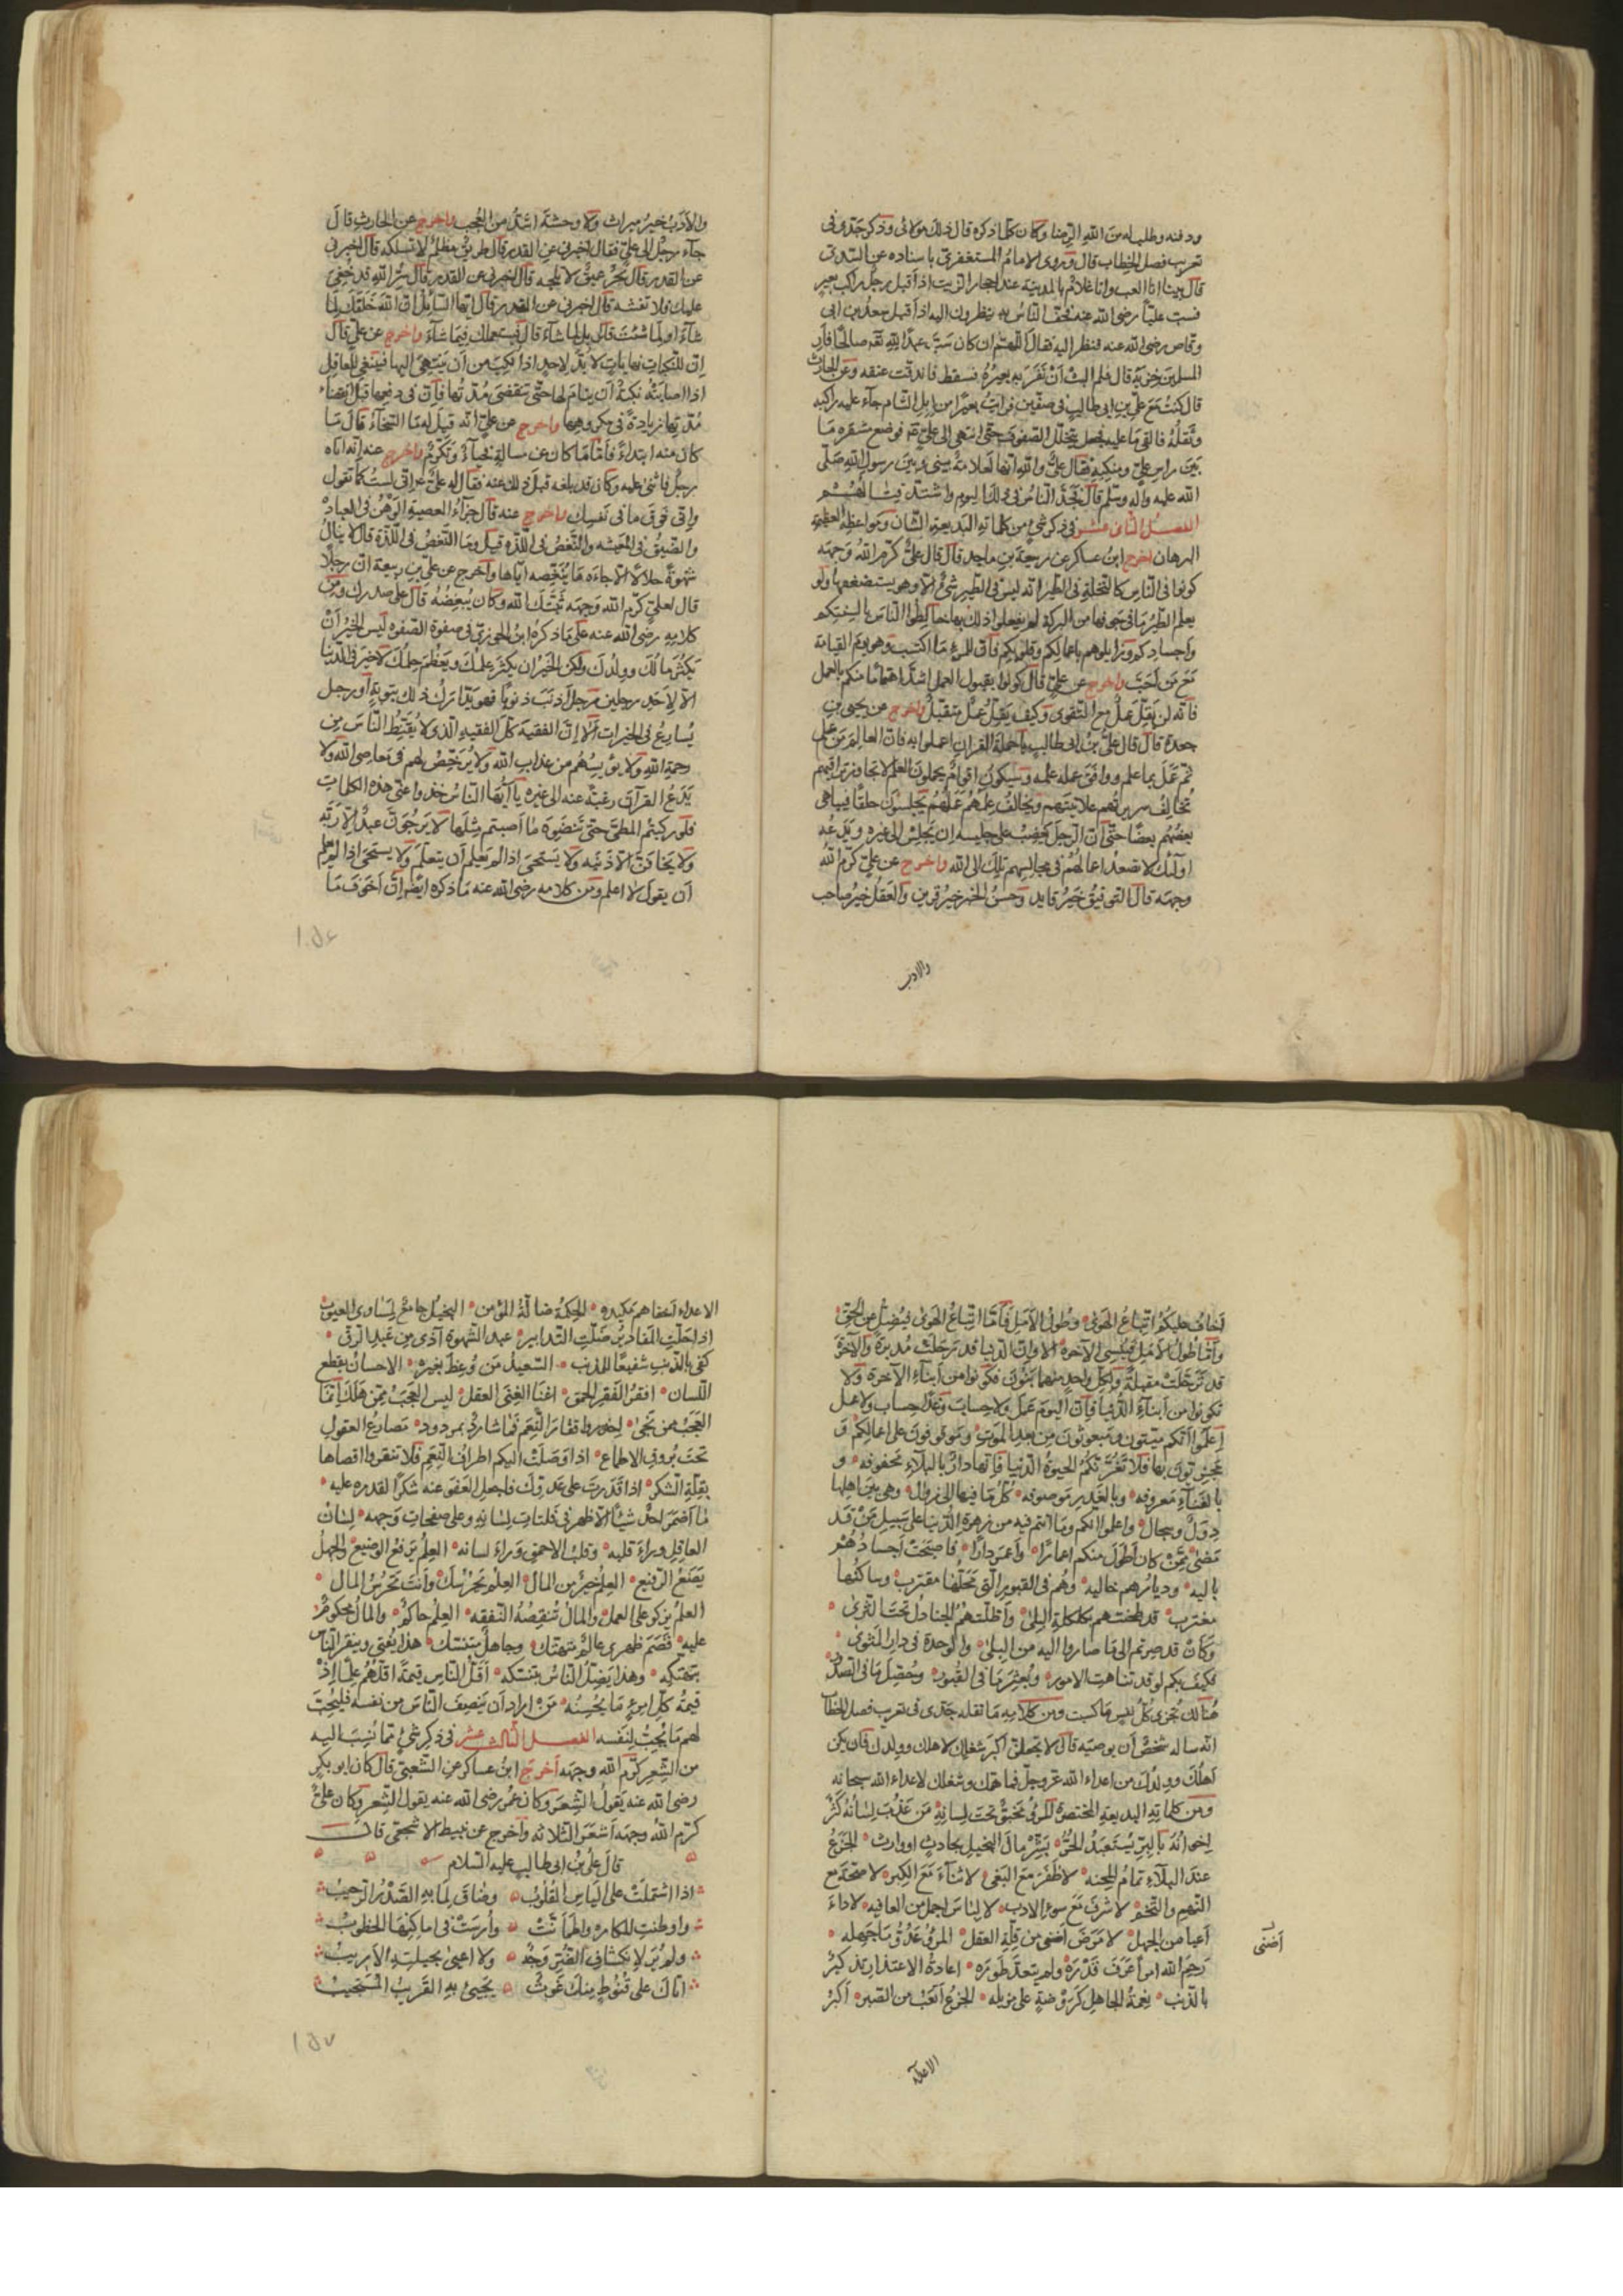 ودفنه وطلب له من الله الرضا وكان كلما ذكره قال ذلك مولائى وذكر جدى فى
تعريب فصل الخطاب قال وروى الامام المستغفرى باسناده عن السدى
قال بينا انا العب وانا غلام بالمدينة عند احجار الزيت اذ اقبل رجل راكب بعير
فسب عليا رضى الله عنه فحف الناس به ينظرون اليه اذ اقبل سعد بن ابى
وقاص رضى الله عنه فنظر اليه فقال اللهم ان كان سب عبدا لله صالحا فار
المسلمين خزيه قال فلم البث أن نفر به بعيره فسقط فاندقت عنقه وعن الحارث
قال كنت مع على بن ابى طالب فى صفين فرايت بعيرا من ابل الشام جاء عليه راكبه
وثقله فالقى ما عليه فجعل يتخلل الصفوف حتى انتهى الى على فوضع مشفره ما
بين راس على ومنكبه فقال على والله انها لعلامة بينى وبين رسول الله صلى
الله عليه واله وسلم قال فجد الناس فى ذلك اليوم واشتد قتالهم
الفصل الثانى عشر فى ذكر شئ من كلماته البديعة الشان ومواعظه العظيمة
البرهان اخرج ابن عساكر عن ربيعة بن ماجد قال قال على كرم الله وجهه
كونوا فى الناس كالنحلة فى الطير انه ليس فى الطير شئ الا وهو يستضعفها ولو
يعلم الطير ما فى جوفها من البركة لم يفعلوا ذلك بها خالطوا الناس بالسنتكم
واجسادكم وزايلوهم باعمالكم وقلوبكم فان للمرء ما اكتسب وهو يوم القيامة
مع من احب واخرج عن على قال كونوا بقبول العمل اشد اهتماما منكم بالعمل
فانه لن يقل عمل مع التقوى وكيف يقل عمل متقبل واخرج عن يحيى بن
جعدة قال قال على بن ابى طالب يا حملة القران اعملوا به فان العالم من عمل
ثم عمل بما علم ووافق عمله علمه وسيكون اقوام يحملون العلم لا تجاوز تراقيهم
تخالف سريرتهم علانيتهم ويخالف علمهم عملهم يجلسون حلقا فيباهى
بعضهم بعضا حتى ان الرجل يغضب على جليسه ان يجلس الى غيره ويدعه
اولئك لا تصعد اعمالهم فى مجالسهم تلك الى الله واخرج عن على كرم الله
وجهه قال التوفيق خير قايد وحسن الخلق خير قرين والعقل خير صاحب
والادب
والادب خير ميراث ولا وحشة اشد من العجب واخرج عن الحارث قال
جاء رجل الى على فقال اخبرنى عن القدر قال طريق مظلم لا تسلكه قال اخبرنى
عن القدر قال بحر عميق لا تلجه قال اخبرنى عن القدر قال سر الله قد خفى
عليك فلا تفشه قال اخبرنى عن القدر قال ايها السائل ان الله خلقك لما
شاء او لما شئت قال بل لما شاء قال فيستعملك فيما شاء واخرج عن على قال
ان للنكبات نهايات لا بد لاحد اذا نكب من أن ينتهى اليها فينبغى للعاقل
اذا اصابته نكبة أن ينام لها حتى تنقضى مدتها فان فى دفعها قبل انقضاء
مدتها زيادة فى مكروهها واخرج عن على انه قيل له ما السخاء قال ما
كان منه ابتداء فاما ما كان عن مسالة فحياء وتكرم واخرج عنه انه اتاه
رجل فاثنى عليه وكان قد بلغه قبل ذلك عنه فقال له على انى لست كما تقول
وانى فوق ما فى نفسك واخرج عنه قال جزاء المعصية الوهن فى العبادة
والضيق فى المعيشه والنغص فى اللذه قيل وما النغص فى اللذة قال لا ينال
شهوة حلالا الا جاءه ما ينغصه اياها واخرج عن على بن ربيعة ان رجلا
قال لعلى كرم الله وجهه ثبتك الله وكان يبغضه قال على صدرك ومن
كلامه رضى الله عنه على ما ذكره ابن الجوزى فى صفوة الصفوه ليس الخير أن
يكثر مالك وولدك ولكن الخير ان يكثر علمك ويعظم حلمك لا خير فى الدنيا
الا لاحد رجلين رجل اذنب ذنوبا فهو يتدارك ذلك بتوبة او رجل
يسارع فى الخيرات الا ان الفقيه كل الفقيه الذى لا يقنط الناس من
رحمة الله ولا يؤيسهم من عذاب الله ولا يرخص لهم فى معاصى الله ولا
يدع القرآن رغبة عنه الى غيره يا ايها الناس خذوا عنى هذه الكلمات
فلو ركبتم المطى حتى تنضوه ما اصبتم مثلها لا يرجون عبد الا ربه
ولا يخافن الا ذنبه ولا يستحى اذا لم يعلم أن يتعلم ولا يستحى اذا لم يعلم
أن يقول لا اعلم ومن كلامه رضى الله عنه ما ذكره ايضا ان اخوف ما
اخاف عليكم اتباع الهوى وطول الامل فاما اتباع الهوى فيضل عن الحق
واما طول الامل فينسى الآخرة الا وان الدنيا قد ترحلت مدبرة والآخرة
قد ترحلت مقبلة ولكل واحد منهما بنون فكونوا من ابناء الآخرة ولا
تكونوا من ابناء الدنيا فان اليوم عمل ولا حساب وغدا حساب ولا عمل
اعلموا انكم ميتون ومبعوثون من بعد الموت وموقوفون على اعمالكم و
مجزيون بها فلا تغرنكم الحيوة الدنيا فانها دار بالبلاء محفوفه و
بالفناء معروفه وبالغدر موصوفه كل ما فيها الى زوال وهى بين اهلها
دول وسجال واعلموا انكم وما انتم فيه من زهرة الدنيا على سبيل من قد
مضى ممن كان اطول منكم اعمارا واعمر ديارا فاصبحت اجسادهم
باليه وديارهم خاليه وهم فى القبور التى محلها مقترب وساكنها
مغترب قد طحنهم بكلكلة البلى واظلتهم الجنادل تحت الثرى
وكان قد صرتم الى ما صاروا اليه من البلى والوحدة فى دار المثوى
فكيف بكم لو قد تناهت الامور وبعثر ما فى القبور وحصل ما فى الصدور
هنالك تجزى كل نفس ما كسبت ومن كلامه ما نقله جدى فى تعريب فصل الخطاب
انه ساله شخص أن يوصيه قال لا تجعلن اكبر شغلك لاهلك وولدك فان يكن
اهلك وولدك من اعداء الله عز وجل فما همك وشغلك لاعداء الله سبحانه
ومن كلماته البديعة المختصرة المرء مخبو تحت لسانه من عذب لسانه كثر
اخوانه بالبر يستعبد الحر بشر مال البخيل بحادث او وارث الجزع
عند البلاء تمام المحنه لا ظفر مع البغى لا ثناء مع الكبر لا صحة مع
النهم والتخم لا شرف مع سوء الادب لا لباس اجمل من العافيه لا داء
اعيا من الجهل لا مرض اضنى من قلة العقل المرء عدو ما جهله
اضنى
رحم الله امرأ عرف قدره ولم يتعد طوره اعادة الاعتذار تذكير
بالذنب نعمة الجاهل كروضة على مزبله الجزع اتعب من الصبر اكبر
الاعداء
الاعداء اخفاهم مكيده الحكمة ضالة المؤمن البخيل جامع لمساوى العيوب
اذا حلت المقادير ضلت التدابير عبد الشهوة اذل من عبد الرق
كفى بالذنب شفيعا للمذنب السعيد من وعظ بغيره الاحسان يقطع
اللسان افقر الفقر الحمق اغنا الغنى العقل ليس العجب ممن هلك انما
العجب ممن نجى احذروا نفار النعم فما شارد بمردود مصارع العقول
تحت بروق الاطماع اذا وصلت اليكم اطراف النعم فلا تنفروا اقصاها
بقلة الشكر اذا قدرت على عدوك فاجعل العفو عنه شكرا لقدره عليه
ما اضمر احد شيئا الا ظهر فى فلتات لسانه وعلى صفحات وجهه لسان
العاقل وراء قلبه وقلب الاحمق وراء لسانه العلم يرفع الوضيع والجهل
يضع الرفيع العلم خير من المال العلم يحرسك وأنت تحرس المال
العلم يزكو على العمل والمال تنقصه النفقه العلم حاكم والمال محكوم
عليه قصم ظهرى عالم متهتك وجاهل متنسك هذا يفتى وينفر الناس
بتهتكه وهذا يضل الناس بتنسكه اقل الناس قيمة اقلهم علما اذ
قيمة كل امرئ ما يحسنه من اراد ان ينصف الناس من نفسه فليحب
لهم ما يحب لنفسه الفصل الثالث عشر فى ذكر شئ مما نسب اليه
من الشعر كرم الله وجهه اخرج ابن عساكر عن الشعبى قال كان ابو بكر
رضى الله عنه يقول الشعر وكان عمر رضى الله عنه يقول الشعر وكان على
كرم الله وجهه اشعر الثلاثه واخرج عن نبيط الاشجعى قال
قال على بن ابى طالب عليه السلام
اذا اشتملت على الياس القلوب وضاق لما به الصدر الرحيب
واوطنت المكاره واطمأنت وأرست فى اماكنها الخطوب
ولم ير لانكشاف الضر وجه ولا اغنى بحيلته الأريب
اتاك على قنوط منك غوث يجيئ به القريب المستجيب